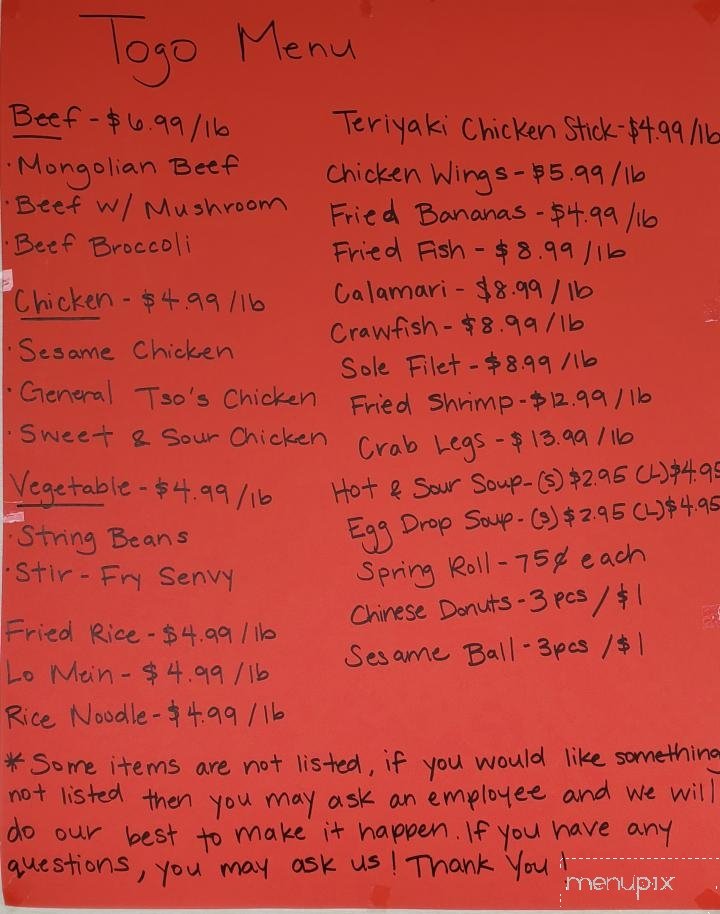 Togo Menu
Beef - $6.99/lb
· Mongolian Beef
· Beef w/ Mushroom
· Beef Broccoli
Chicken - $4.99/lb
· Sesame Chicken
· General Tso's Chicken
· Sweet & Sour Chicken
Vegetable - $4.99/lb
· String Beans
· Stir-Fry Senvy
Fried Rice - $4.99/lb
Lo Mein - $4.99/lb
Rice Noodle - $4.99/lb
Teriyaki Chicken Stick - $4.99/lb
Chicken Wings - $5.99/lb
Fried Bananas - $4.99/lb
Fried Fish - $8.99/lb
Calamari - $8.99/lb
Crawfish - $8.99/lb
Sole Filet - $8.99/lb
Fried Shrimp - $12.99/lb
Crab Legs - $13.99/lb
Hot & Sour Soup - (S) $2.95 (L) $4.95
Egg Drop Soup - (S) $2.95 (L) $4.95
Spring Roll - 75¢ each
Chinese Donuts - 3 pcs / $1
Sesame Ball - 3pcs / $1
* Some items are not listed, if you would like something
not listed then you may ask an employee and we will
do our best to make it happen. If you have any
questions, you may ask us! Thank You!
menupix